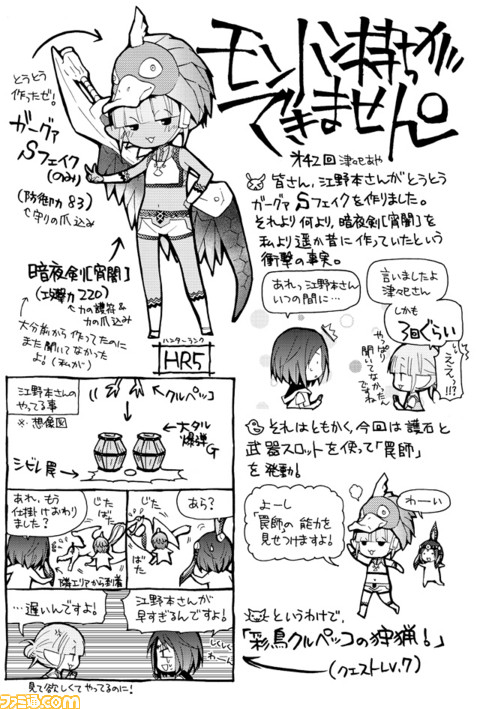 モンハン持ちが
できません。
第42回 津々巳あや
とうとう
作ったぜ。
ガーグァ
Sフェイク
(のみ)
(防御力 83)
↑守りの爪込み
暗夜剣[宵闇]
(攻撃力220)
↑力の護符&
力の爪込み
大分前から作ってたのに
また聞いてなかった
よ!(私が)
ハンターランク
HR5
皆さん、江野本さんがとうとう
ガーグァSフェイクを作りました。
それより何より、暗夜剣[宵闇]を
私より遥か昔に作っていたという
衝撃の事実。
あれっ江野本さん
いつの間に…
言いましたよ
津々巳さん
しかも
3回ぐらい
えぇっ!!?
やっぱり
聞いてなかったん
ですね
それはともかく、今回は護石と
武器スロットを使って「罠師」
を発動!
よーし
「罠師」の能力を
見せつけますよ!
わーい
というわけで、
「彩鳥クルペッコの狩猟!」
(クエストLv.7)
江野本さんの
やってる事
※想像図
クルペッコ
大タル
爆弾G
シビレ罠
あら?
じた
ばた
じた
ばた
あれ、もう
仕掛けおわり
ました?
隣エリアから到着
江野本さんが
早すぎるんですよ!
しくしく
わーん
…遅いんですよ!
見て欲しくてやってるのに!
ファミ通.com